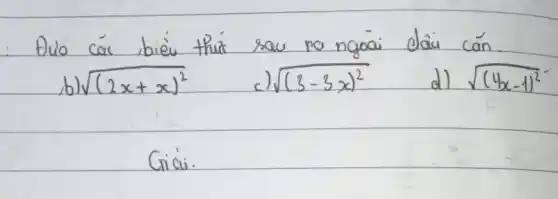 : Đưa các biểu thức sau ra ngoài dấu căn.
b) √(2x + x)² c) √(3 - 3x)² d) √(4x - 1)²
Giải.